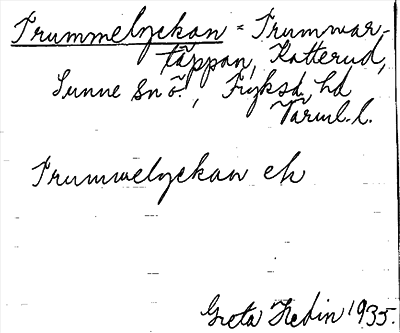 Trummelyckan = Trumwar-
täppan, Katterud,
Sunne sn ö., Fryksd. hd
Värml. l.
Trummelyckan eh
Greta Hedin 1935.